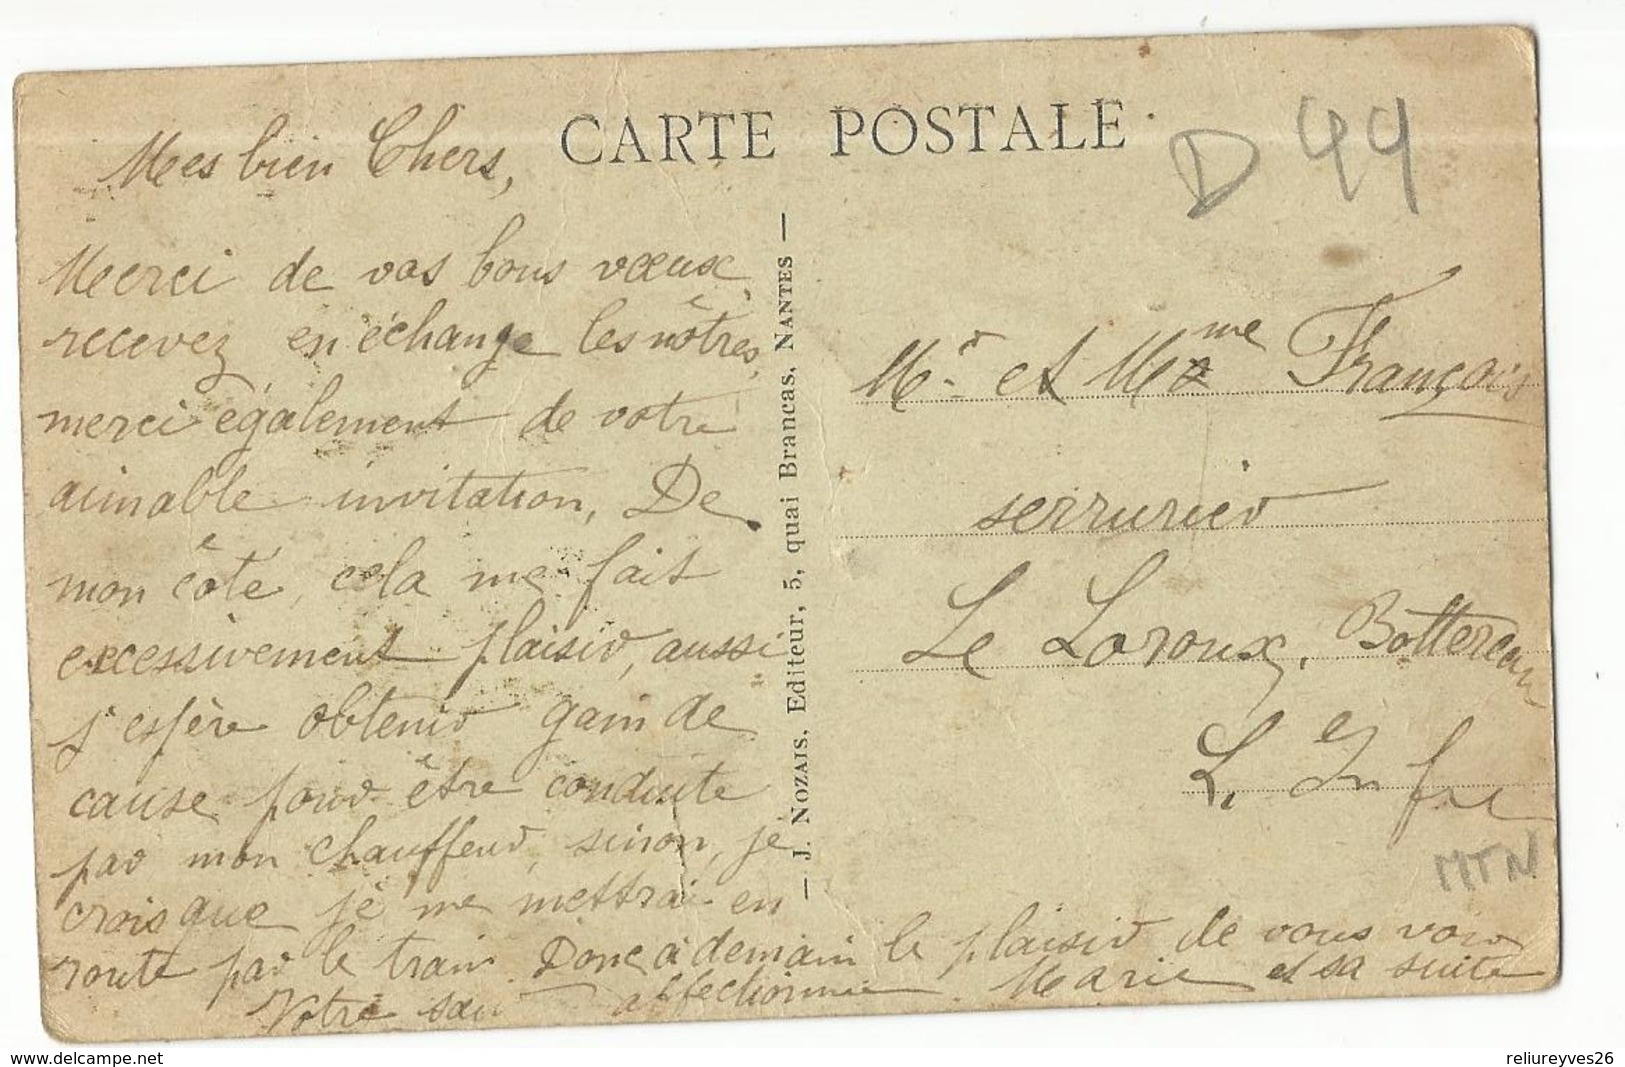 CARTE POSTALE
D 44
Mes bien Chers,
Merci de vos bons vœux,
recevez en échange les nôtres,
merci également de votre
aimable invitation, De
mon côté, cela me fait
excessivement plaisir, aussi
j'espère obtenir gain de
cause pour être conduite
par mon chauffeur, sinon, je
crois que je me mettrai en
route par le train Donc à demain le plaisir de vous voir
Votre affectionnée Marie et sa suite
— J. NOZAIS, Editeur, 5, quai Brancas, NANTES —
Mr. et Mme François
serrurier
Le Loroux, Bottereau
L. Infre
MTN
www.delcampe.net
reliureyves26